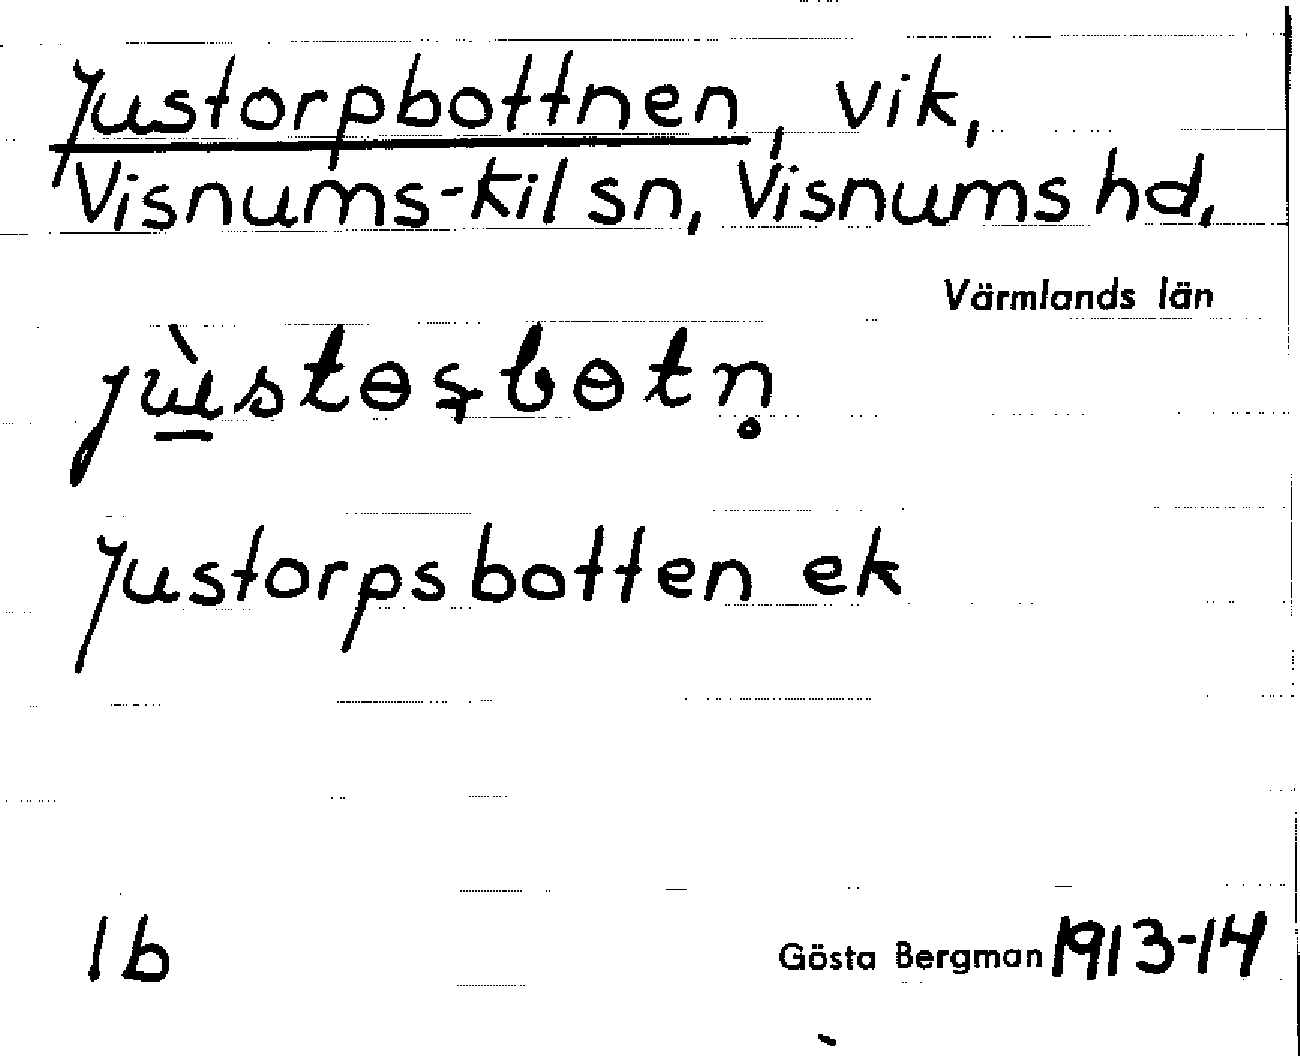 Justorpbottnen, vik,
Visnums-Kil sn, Visnums hd,
Värmlands län
jùstɵșbɵtn̥
Justorpsbotten ek
1b
Gösta Bergman 1913-14